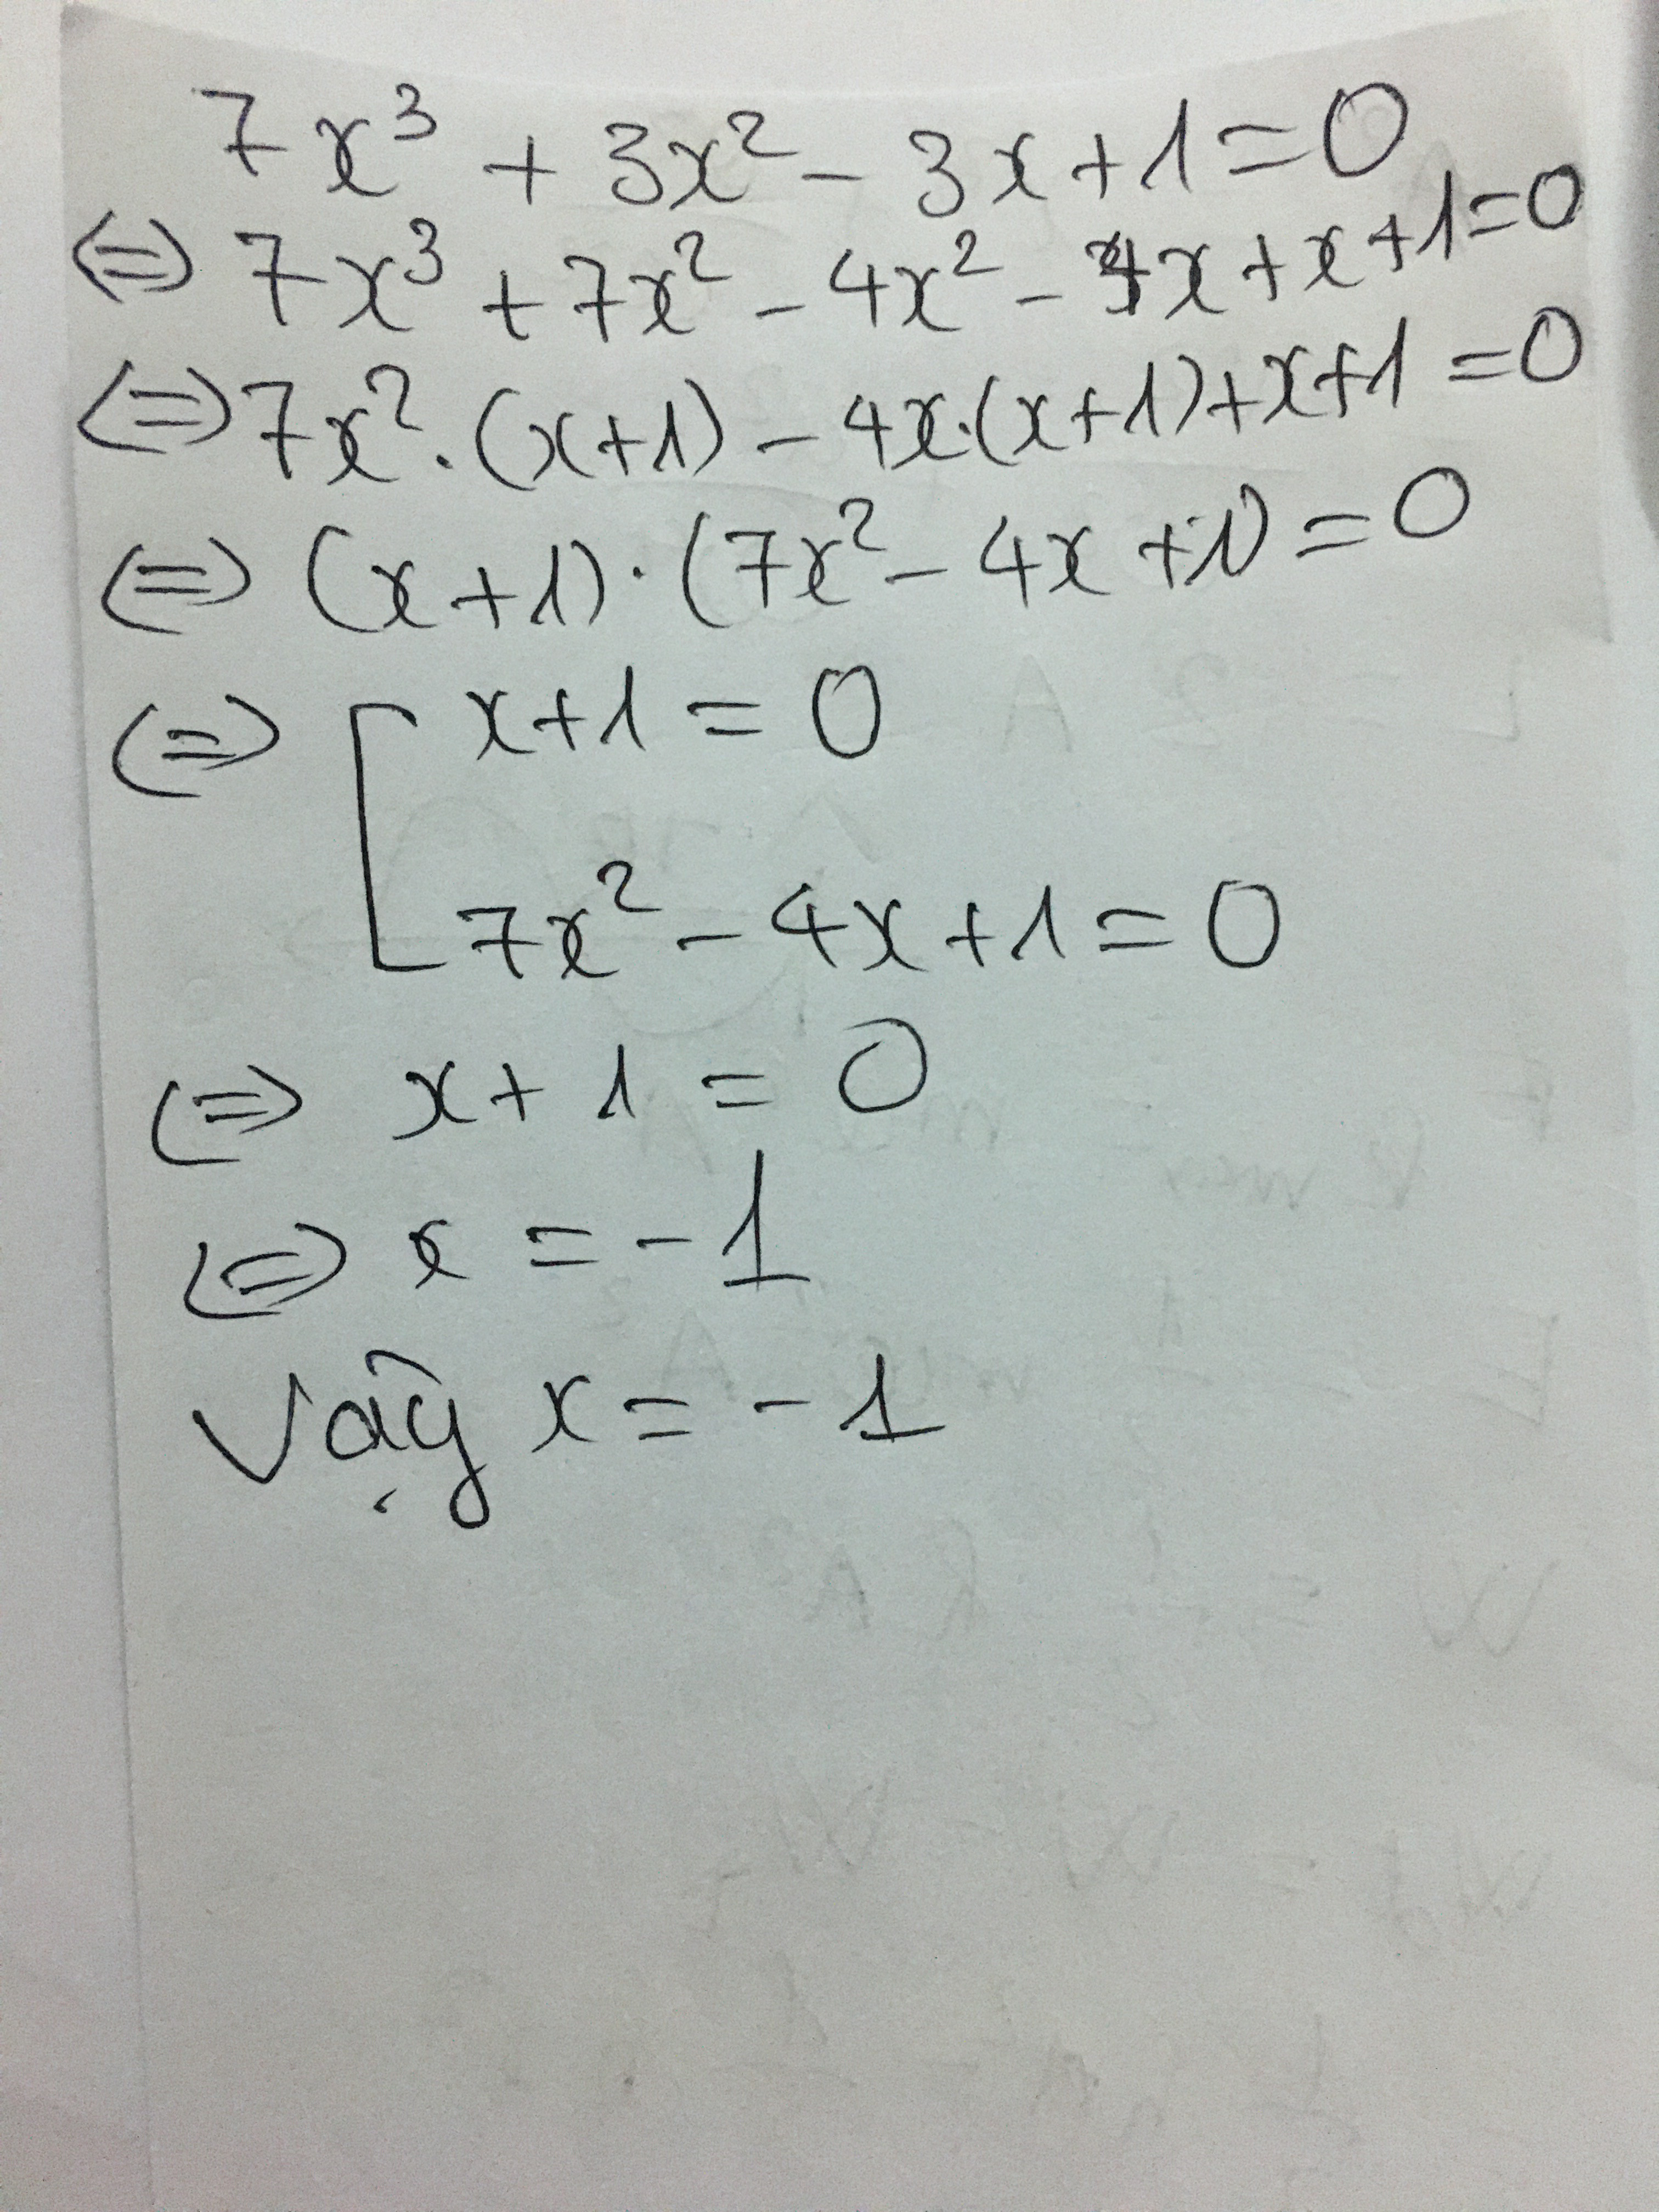 7x³ + 3x² - 3x + 1 = 0
(=) 7x³ + 7x² - 4x² - 4x + x + 1 = 0
(=) 7x² . (x+1) - 4x.(x+1) + x+1 = 0
(=) (x+1) . (7x² - 4x + 1) = 0
(=) [ x+1 = 0
7x² - 4x + 1 = 0
(=) x + 1 = 0
(=) x = -1
Vậy x = -1